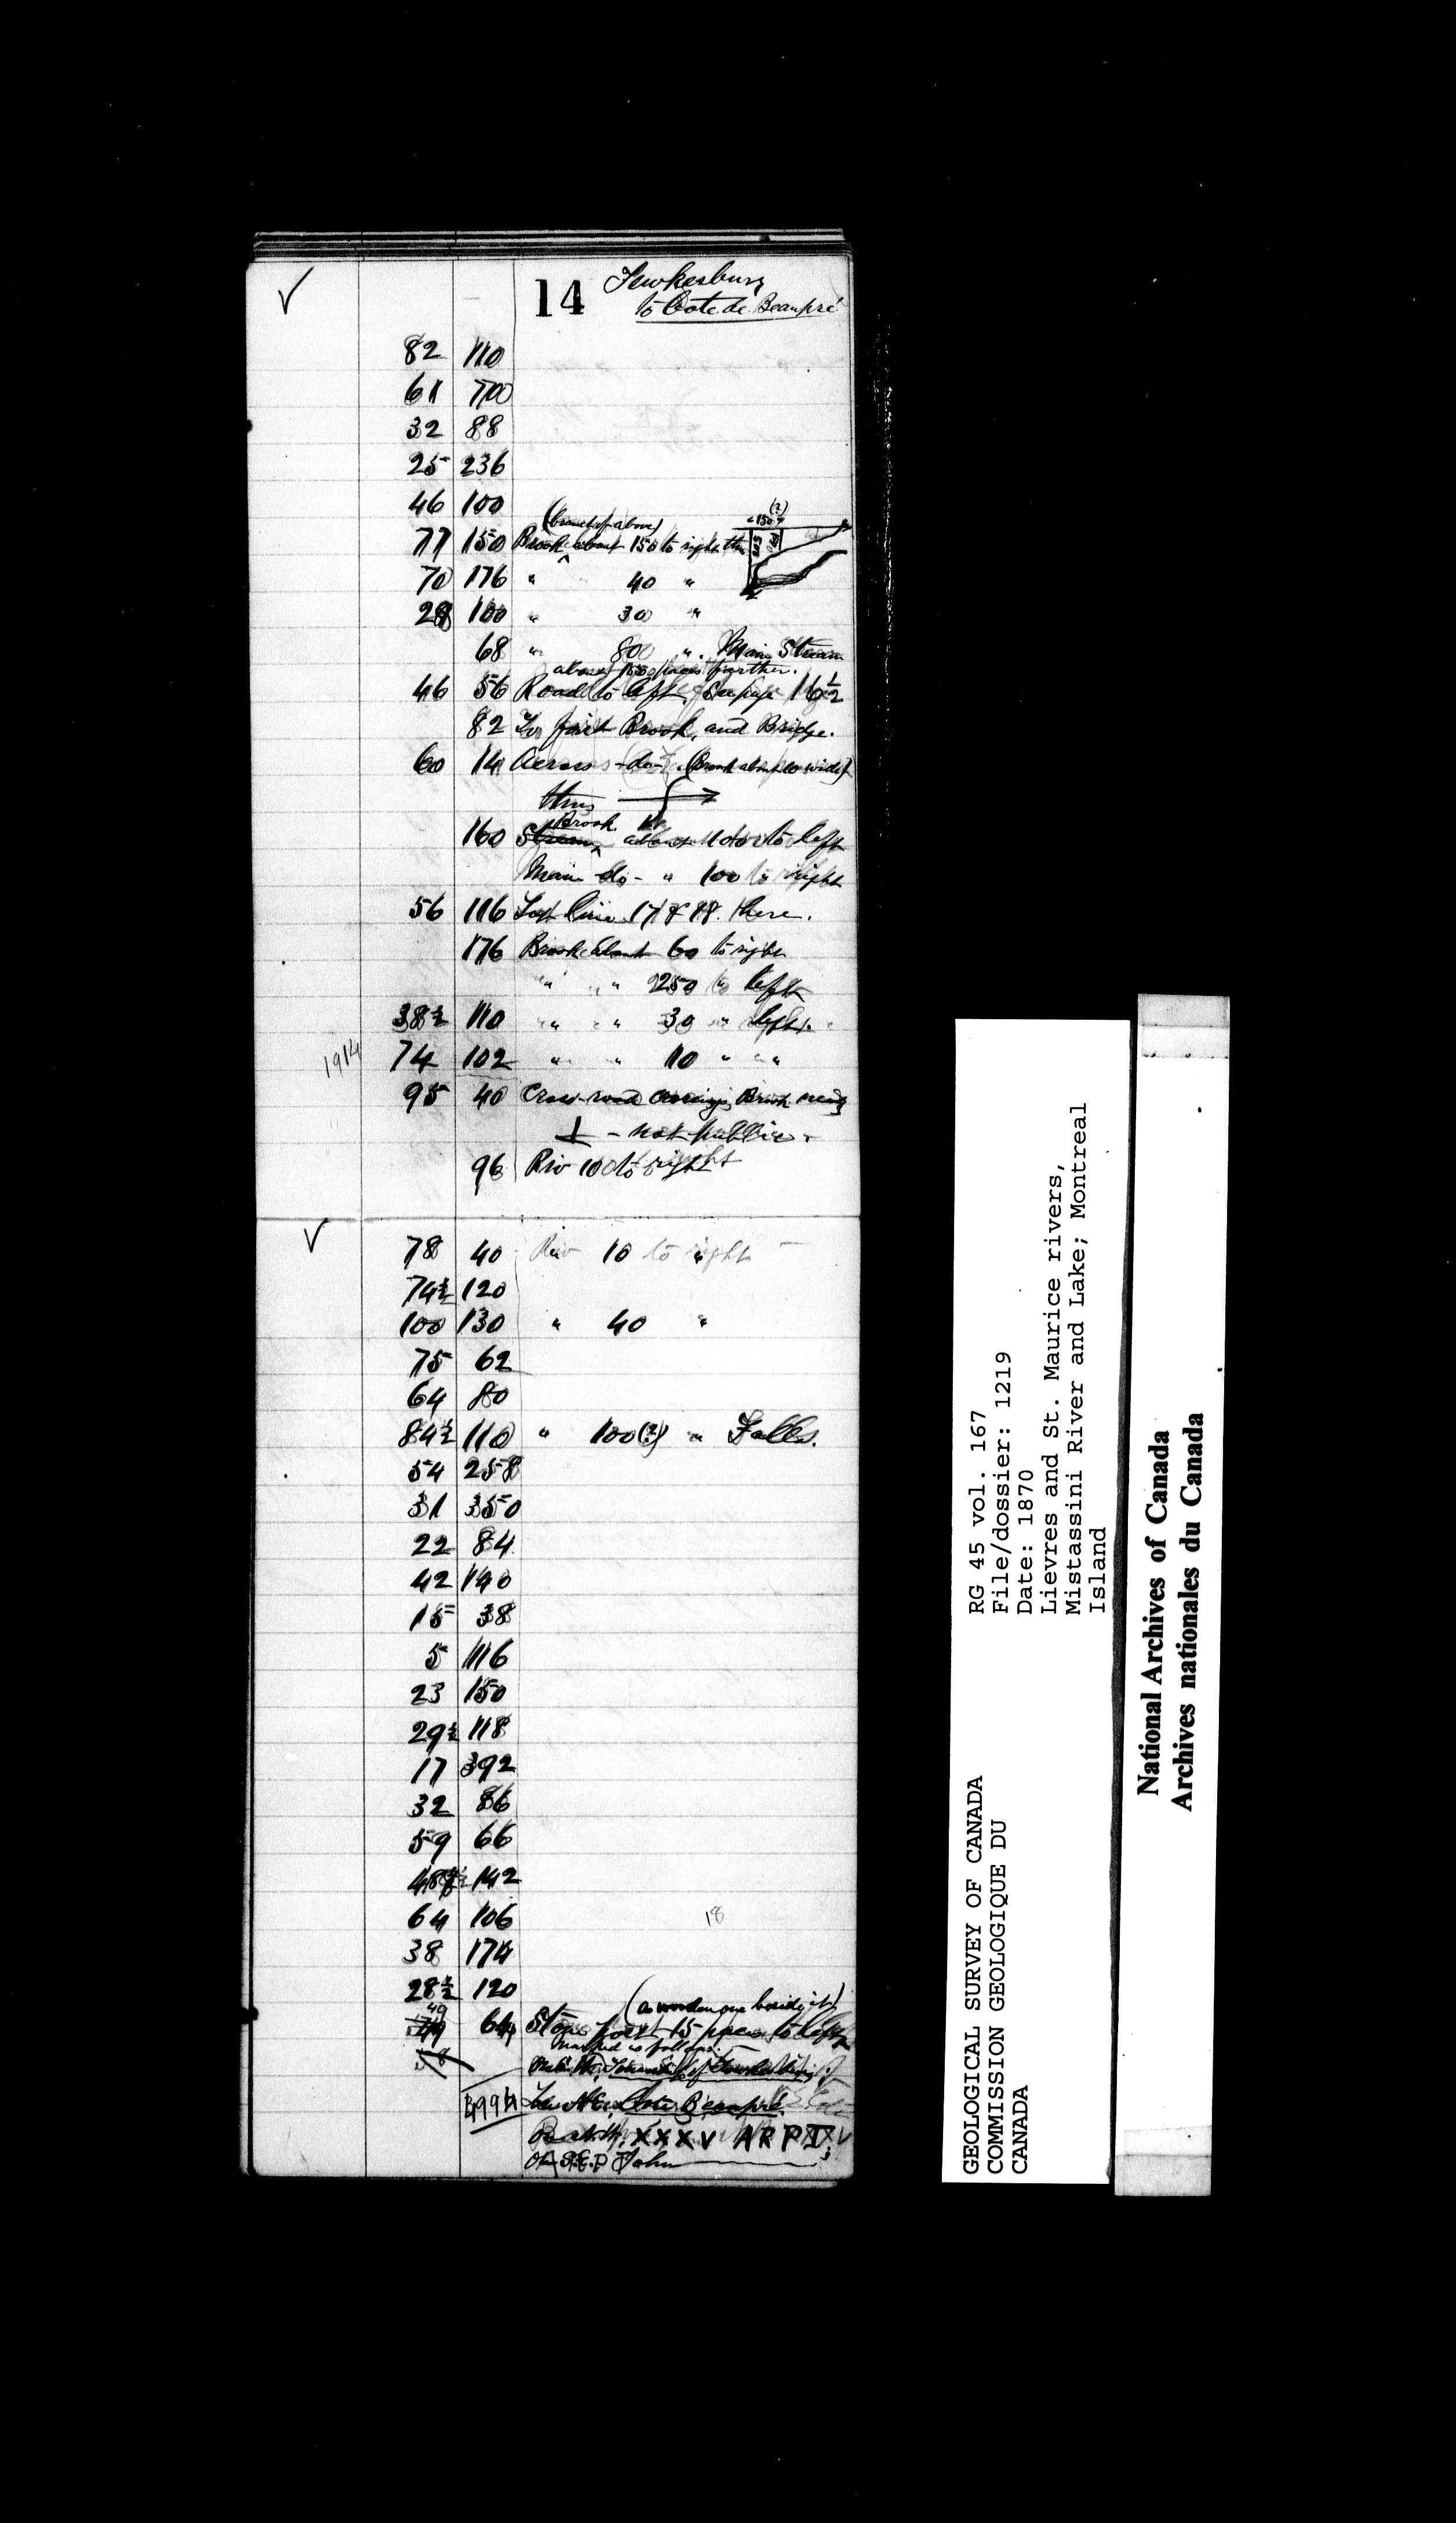 14 Tewkesbury
to Cote de Beaupré
82 110
61 700
32 88
25 236
46 100
(branch of above) (?)
<150>
77 150 Brook about 150 to right thus
70 176 " 40 "
28 100 " 30 "
68 " 80 ". Main Stream
about 150 paces further.
46 56 Road to left, See page 16½
82 To first Brook, and Bridge.
60 14 Across -do- (Brook about 10 wide)
thus
Brook
160 Stream about 100 to left
Main -do- " 100 to right
56 116 Lot line 17 & 18 here.
176 Brook about 60 to right
" " 250 to left
38½ 110 " " 30 " left.
1914 74 102 " " 10 " "
95 40 Cross-road crossing Brook nearly
⊥ - not public.
96 Riv 100 to right
78 40 Riv 10 to right
74½ 120
100 130 " 40 "
75 62
64 80
84½ 110 " 100(?) " Falls.
54 258
31 350
22 84
42 140
15 38
5 116
23 150
29½ 118
17 392
32 86
59 66
48½ 142
64 106
18
38 174
28½ 120
(a wooden one beside it)
49 64 Stone post 15 paces to left
marked as follows:
Township of Tewkesbury
4994 Cote Beaupré
XXXV ARPT
John
GEOLOGICAL SURVEY OF CANADA
COMMISSION GEOLOGIQUE DU
CANADA
RG 45 vol. 167
File/dossier: 1219
Date: 1870
Lievres and St. Maurice rivers,
Mistassini River and Lake; Montreal
Island
National Archives of Canada
Archives nationales du Canada